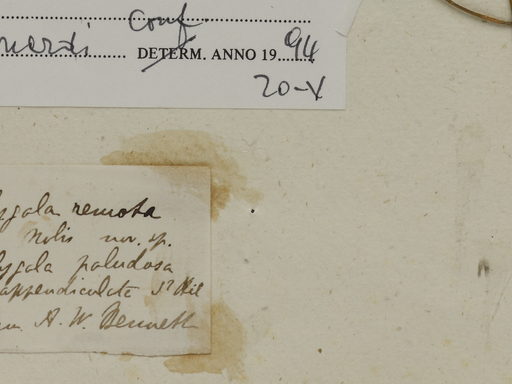 conf.
DETERM. ANNO 1994
20-X
ygala remota
Nobis nov. sp.
ygala paludosa
appendiculata St Hil
A. W. Bennett